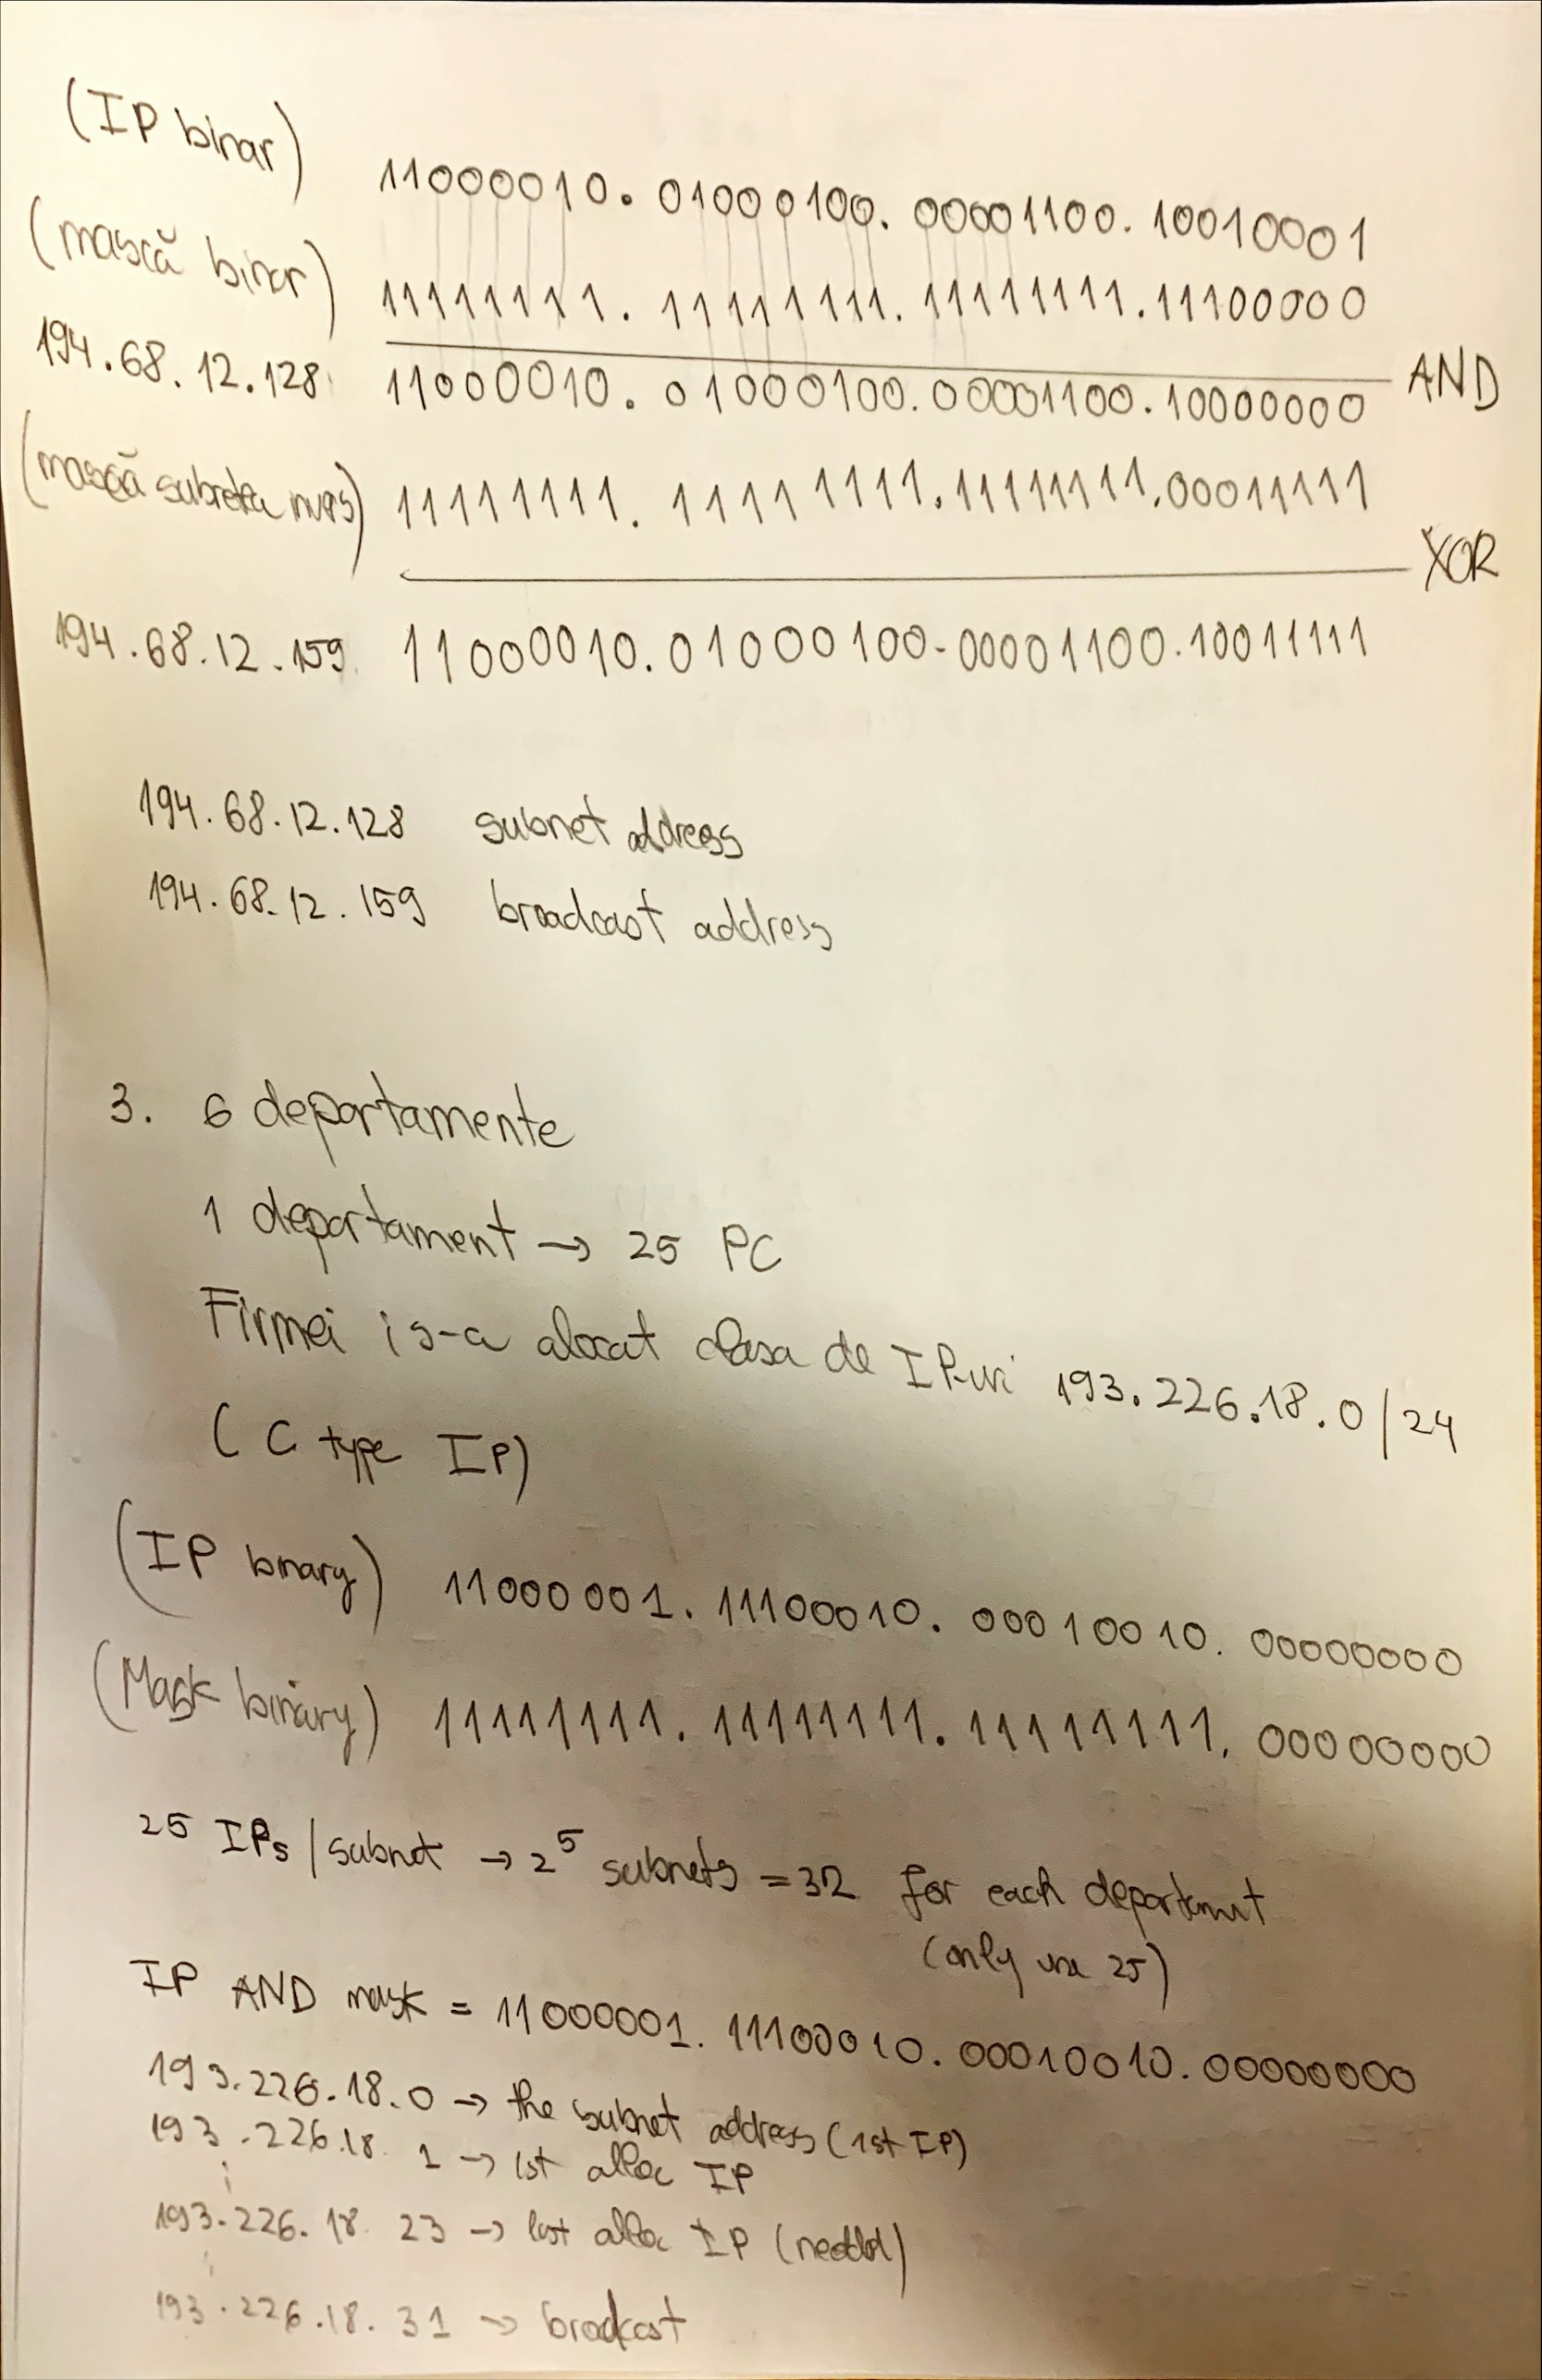 (IP binar) 11000010. 01000100. 00001100. 10010001
(mască binar) 11111111. 11111111. 11111111. 11100000
AND
194.68.12.128 11000010. 01000100. 00001100. 10000000
(mască invers) 11111111. 11111111. 11111111. 00011111
XOR
194.68.12.159 11000010. 01000100. 00001100. 10011111
194.68.12.128 subnet address
194.68.12.159 broadcast address
3. 6 departamente
1 departament → 25 PC
Firmei i s-a alocat clasa de IP-uri 193.226.18.0/24
(C type IP)
(IP binary) 11000001. 11100010. 00010010. 00000000
(Mask binary) 11111111. 11111111. 11111111. 00000000
25 IPs/subnet → 2^5 subnets = 32 for each department
(only use 25)
IP AND mask = 11000001. 11100010. 00010010. 00000000
193.226.18.0 → the subnet address (1st IP)
193.226.18 1 → 1st alloc IP
⋮
193.226.18. 23 → last alloc IP
⋮
193.226.18. 31 → brodcast